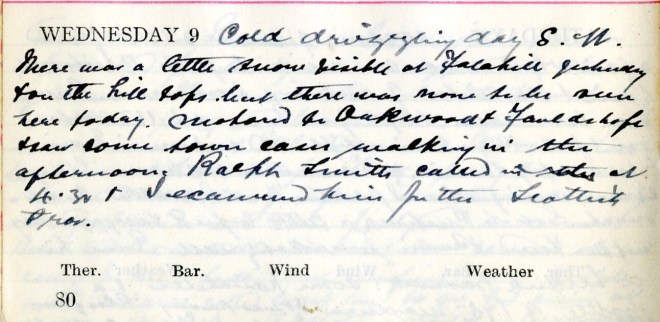 WEDNESDAY 9 Cold drizzling day S.W.
There was a little snow visible at Falahill yesterday
& on the hill tops. but there was none to be seen
here today. Motored to Oakwood & Fauldshope
& saw some town cases walking in the
afternoon. Ralph Smith called in at
4.30 & I examined him for the Scottish
Prov.
Ther. Bar. Wind Weather
80